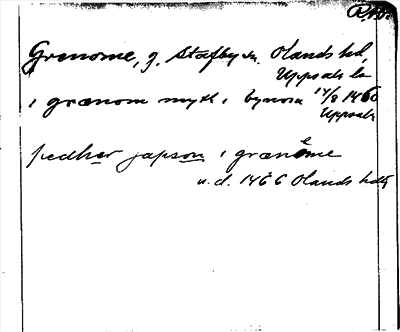 Grenome, g. Stafby sn. Olands hd,
Uppsala län
i grænom myk i bynom 14/8 1460
Uppsala
pedhær japson i grænome
u.d. 1466 Olands hdg